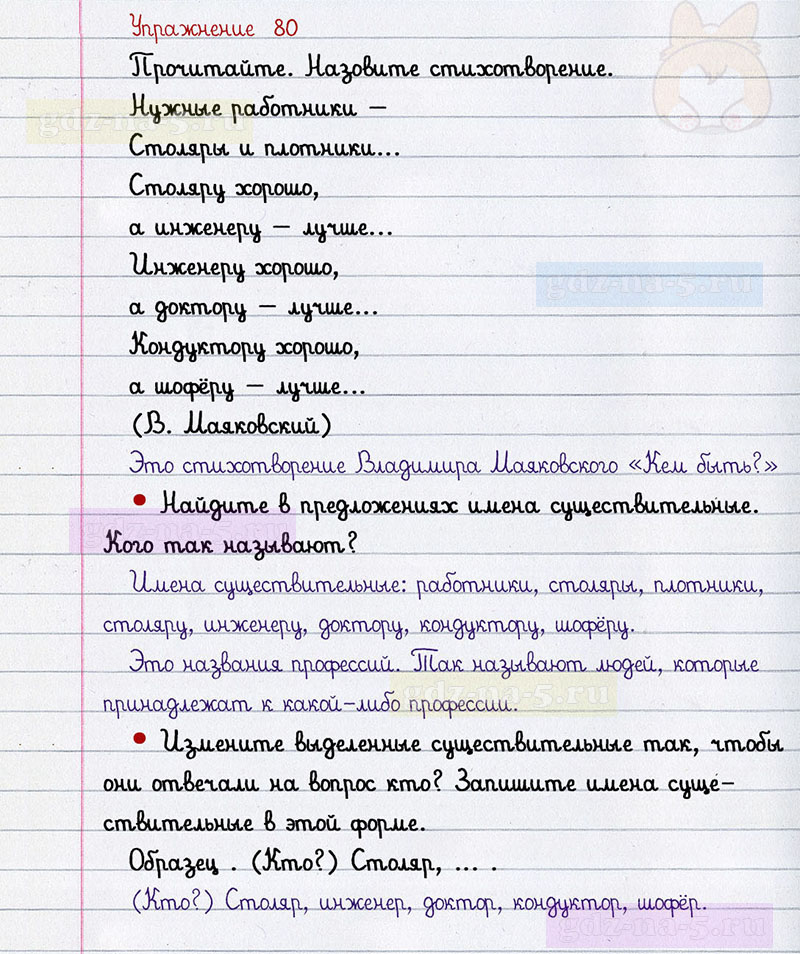 Упражнение 80
Прочитайте. Назовите стихотворение.
Нужные работники –
gdz-na-5.ru
Столяры и плотники...
Столяру хорошо,
а инженеру – лучше...
Инженеру хорошо,
gdz-na-5.ru
а доктору – лучше...
Кондуктору хорошо,
а шофёру – лучше...
(В. Маяковский)
Это стихотворение Владимира Маяковского «Кем быть?»
• Найдите в предложениях имена существительные.
gdz-na-5.ru
Кого так называют?
Имена существительные: работники, столяры, плотники,
столяру, инженеру, доктору, кондуктору, шофёру.
Это названия профессий. Так называют людей, которые
gdz-na-5.ru
принадлежат к какой-либо профессии.
• Измените выделенные существительные так, чтобы
они отвечали на вопрос кто? Запишите имена суще-
ствительные в этой форме.
Образец . (Кто?) Столяр, ... .
(Кто?) Столяр, инженер, доктор, кондуктор, шофёр.
gdz-na-5.ru